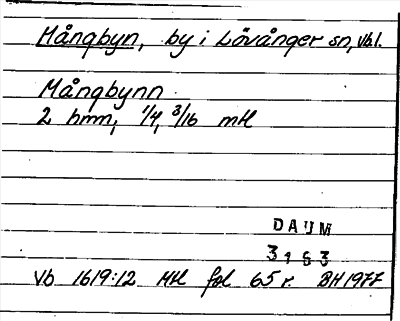 Mångbyn, by i Lövånger sn, Vbl.
Mångbynn
2 hmn, 1/4, 3/16 mtl
DAUM
3163
Vb 1619:12 Mtl fol 65 r. BH 1977